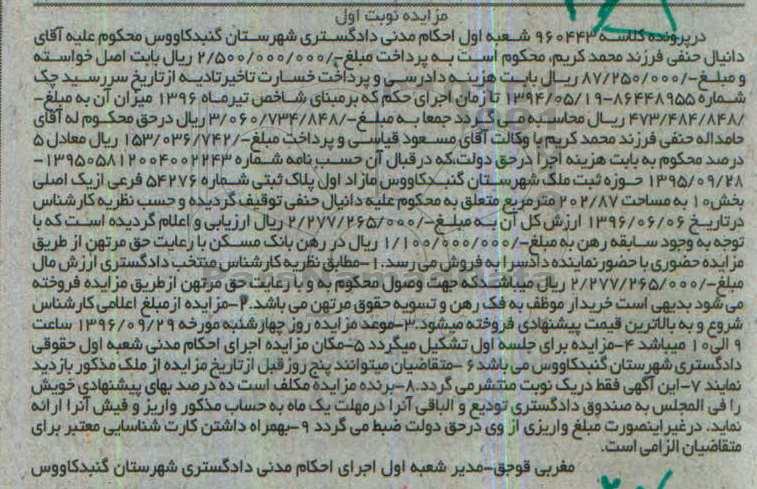 مزایده نوبت اول
درپرونده کلاسه ۹۶۰۴۴۳ شعبه اول احکام مدنی دادگستری شهرستان گنبدکاووس محکوم علیه آقای
دانیال حنفی فرزند محمد کریم، محکوم است به پرداخت مبلغ-/۲/۵۰۰/۰۰۰/۰۰۰ ریال بابت اصل خواسته
و مبلغ-/۸۷/۲۵۰/۰۰۰ ریال بابت هزینه دادرسی و پرداخت خسارت تاخیرتادیه ازتاریخ سررسید چک
شماره ۸۶۴۴۸۹۵۵-۱۳۹۴/۰۵/۱۹ تا زمان اجرای حکم که برمبنای شاخص تیرماه ۱۳۹۶ میزان آن به مبلغ-
/۴۷۳/۴۸۴/۸۴۸ ریال محاسبه می گردد جمعا به مبلغ-/۳/۰۶۰/۷۳۴/۸۴۸ ریال درحق محکوم له آقای
حامداله حنفی فرزند محمد کریم با وکالت آقای مسعود قیاسی و پرداخت مبلغ-/۱۵۳/۰۳۶/۷۴۲ ریال معادل ۵
درصد محکوم به بابت هزینه اجرا درحق دولت،که درقبال آن حسب نامه شماره ۱۳۹۵۰۵۸۱۲۰۰۴۰۰۲۲۴۳-
۱۳۹۵/۰۹/۲۸ حوزه ثبت ملک شهرستان گنبدکاووس مازاد اول پلاک ثبتی شماره ۵۴۲۷۶ فرعی ازیک اصلی
بخش۱۰ به مساحت ۲۰۲/۸۷ مترمربع متعلق به محکوم علیه دانیال حنفی توقیف گردیده و حسب نظریه کارشناس
درتاریخ ۱۳۹۶/۰۶/۰۶ ارزش کل آن به مبلغ-/۲/۲۷۷/۲۶۵/۰۰۰ ریال ارزیابی و اعلام گردیده است که با
توجه به وجود سابقه رهن به مبلغ-/۱/۱۰۰/۰۰۰/۰۰۰ ریال در رهن بانک مسکن با رعایت حق مرتهن از طریق
مزایده حضوری با حضور نماینده دادسرا به فروش می رسد.۱-مطابق نظریه کارشناس منتخب دادگستری ارزش مال
مبلغ-/۲/۲۷۷/۲۶۵/۰۰۰ ریال میباشدکه جهت وصول محکوم به و با رعایت حق مرتهن ازطریق مزایده فروخته
می شود بدیهی است خریدار موظف به فک رهن و تسویه حقوق مرتهن می باشد.۲-مزایده از مبلغ اعلامی کارشناس
شروع و به بالاترین قیمت پیشنهادی فروخته میشود.۳-موعد مزایده روز چهارشنبه مورخه ۱۳۹۶/۰۹/۲۹ ساعت
۹ الی۱۰ میباشد ۴-مزایده برای جلسه اول تشکیل میگردد ۵-مکان مزایده اجرای احکام مدنی شعبه اول حقوقی
دادگستری شهرستان گنبدکاووس می باشد۶ -متقاضیان میتوانند پنج روز قبل ازتاریخ مزایده از ملک مذکور بازدید
نمایند ۷-این آگهی فقط دریک نوبت منتشرمی گردد.۸-برنده مزایده مکلف است ده درصد بهای پیشنهادی خویش
را فی المجلس به صندوق دادگستری تودیع و الباقی آنرا درمهلت یک ماه به حساب مذکور واریز و فیش آنرا ارائه
نماید. درغیراینصورت مبلغ واریزی از وی درحق دولت ضبط می گردد ۹-بهمراه داشتن کارت شناسایی معتبر برای
متقاضیان الزامی است.
مغربی قوجق-مدیر شعبه اول اجرای احکام مدنی دادگستری شهرستان گنبدکاووس